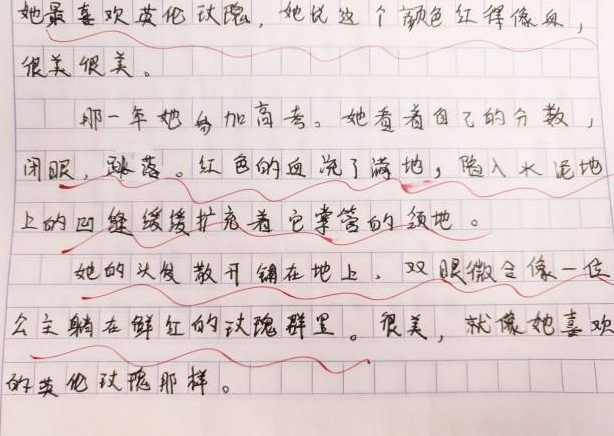 她最喜欢英伦玫瑰，她说这个颜色红得像血，
很美很美。
那一年她参加高考。她看着自己的分数，
闭眼，跳落。红色的血流了满地，陷入水泥地
上的凹缝缓缓扩充着它掌管的领地。
她的头发散开铺在地上，双眼微合像一位
公主躺在鲜红的玫瑰群里。很美，就像她喜欢
的英伦玫瑰那样。